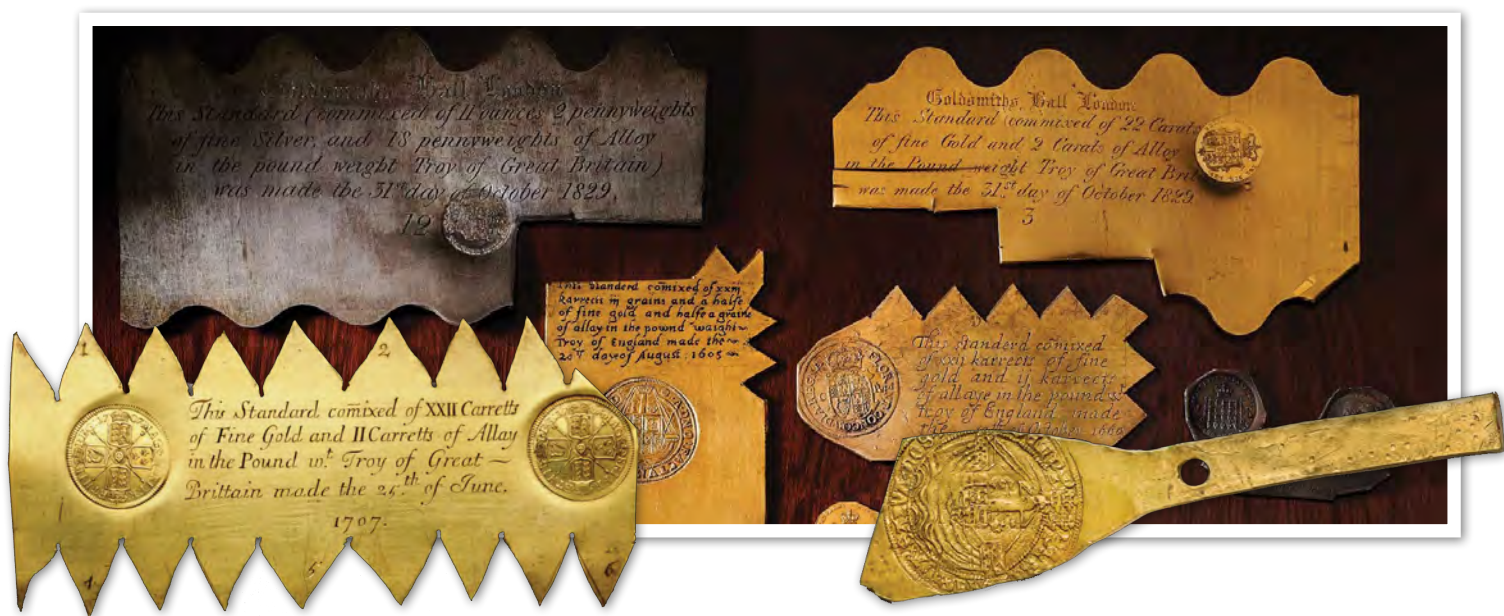 Goldsmiths Hall London
This Standard (commixed of 11 ounces 2 pennyweights
of fine Silver, and 18 pennyweights of Alloy
in the pound weight Troy of Great Britain)
was made the 31st day of October 1829.
12
Goldsmiths Hall London
This Standard (commixed of 22 Carats
of fine Gold and 2 Carats of Alloy
in the Pound weight Troy of Great
was made the 31st day of October 1829
3
This standerd comixed of xxiij
karrects iij grains and a halfe
of fine gold and halfe a graine
of allay in the pound waight
Troy of England made the
day of August 1605
This standerd comixed
of xxij karrects of fine
gold and ij karrects
of allaye in the pound wt
Troy of England made
the October 1660
1 2
This Standard comixed of XXII Carretts
of Fine Gold and II Carretts of Allay
in the Pound wt. Troy of Great
Brittain made the 25th of June.
1707.
4 5 6